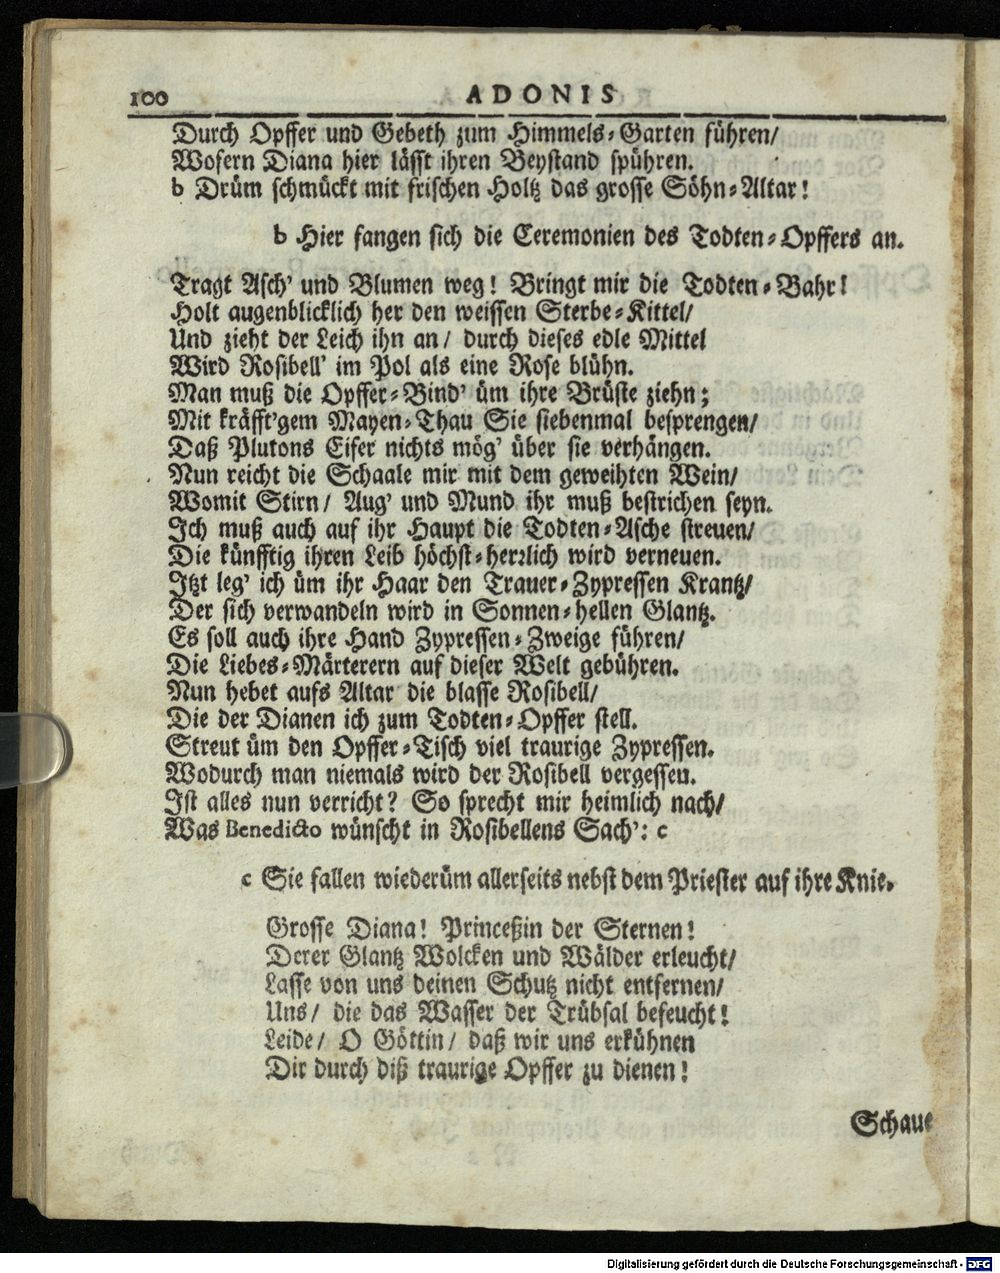 100 ADONIS
Durch Opffer und Gebeth zum Himmels-Garten führen/
Wofern Diana hier lässt ihren Beystand spühren.
b Drüm schmückt mit frischen Holtz das grosse Söhn-Altar!
b Hier fangen sich die Ceremonien des Todten-Opffers an.
Tragt Asch' und Blumen weg! Bringt mir die Todten-Bahr!
Holt augenblicklich her den weissen Sterbe-Kittel/
Und zieht der Leich ihn an/ durch dieses edle Mittel
Wird Rosibell' im Pol als eine Rose blühn.
Man muß die Opffer-Bind' üm ihre Brüste ziehn;
Mit kräfft'gem Mayen-Thau Sie siebenmal besprengen/
Daß Plutons Eifer nichts mög' über sie verhängen.
Nun reicht die Schaale mir mit dem geweihten Wein/
Womit Stirn/ Aug' und Mund ihr muß bestrichen seyn.
Ich muß auch auf ihr Haupt die Todten-Asche streuen/
Die künfftig ihren Leib höchst-herzlich wird verneuen.
Itzt leg' ich üm ihr Haar den Trauer-Zypressen Krantz/
Der sich verwandeln wird in Sonnen-hellen Glantz.
Es soll auch ihre Hand Zypressen-Zweige führen/
Die Liebes-Märterern auf dieser Welt gebühren.
Nun hebet aufs Altar die blasse Rosibell/
Die der Dianen ich zum Todten-Opffer stell.
Streut üm den Opffer-Tisch viel traurige Zypressen.
Wodurch man niemals wird der Rosibell vergessen.
Ist alles nun verricht? So sprecht mir heimlich nach/
Was Benedicto wünscht in Rosibellens Sach': c
c Sie fallen wiederüm allerseits nebst dem Priester auf ihre Knie.
Grosse Diana! Princeßin der Sternen!
Derer Glantz Wolcken und Wälder erleucht/
Lasse von uns deinen Schutz nicht entfernen/
Uns/ die das Wasser der Trübsal befeucht!
Leide/ O Göttin/ daß wir uns erkühnen
Dir durch diß traurige Opffer zu dienen!
Schaue
Digitalisierung gefördert durch die Deutsche Forschungsgemeinschaft - DFG